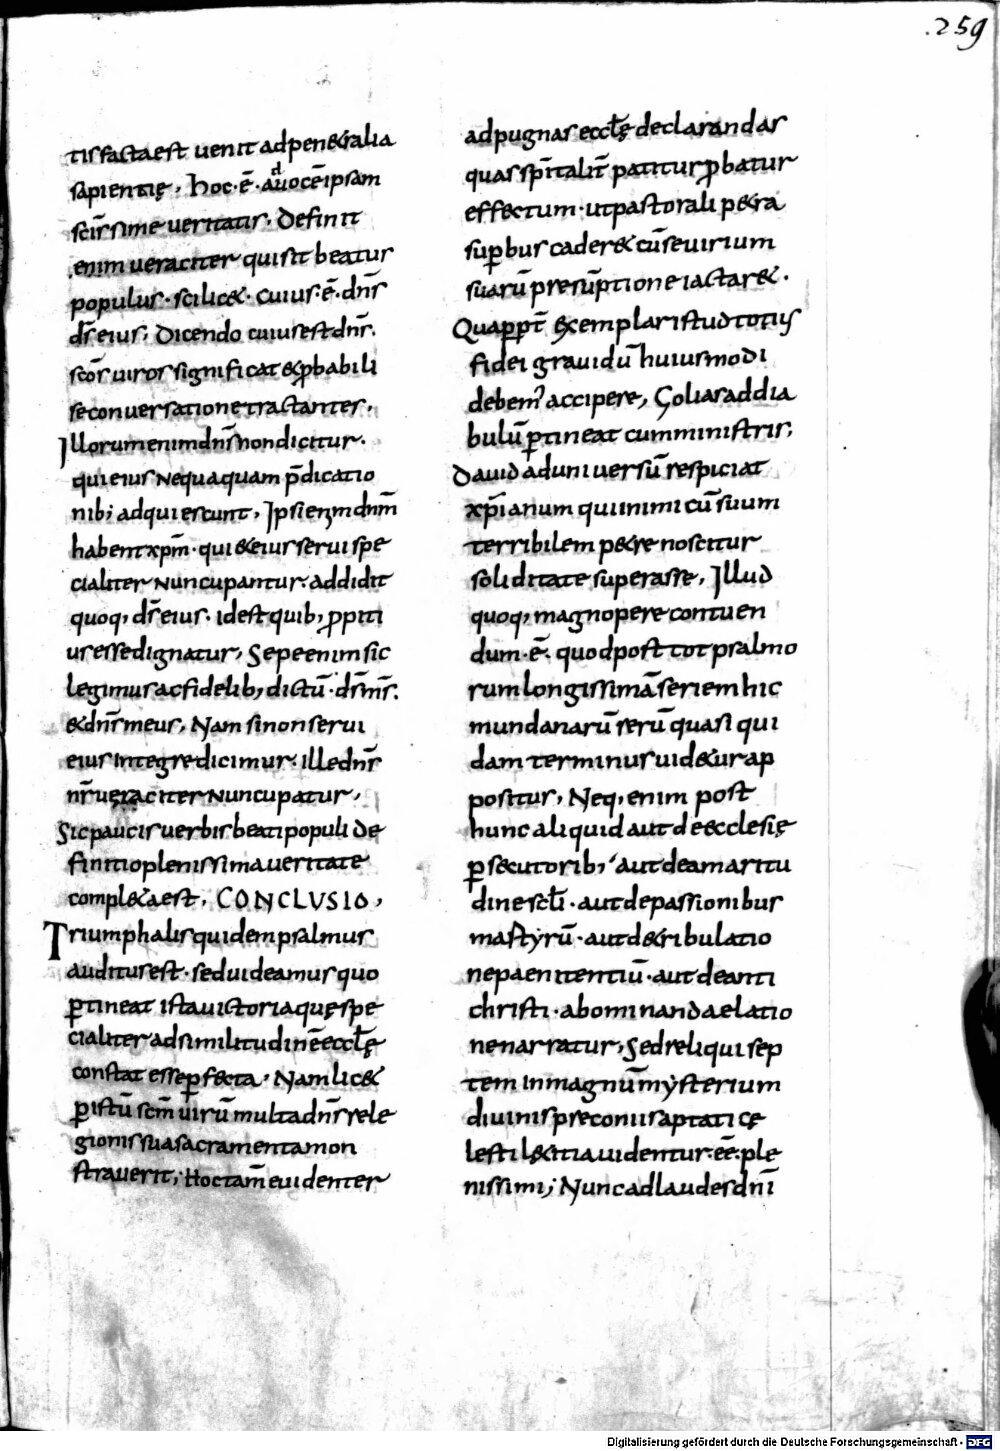 .259
tis facta est uenit ad penetralia
sapientię. hoc .ē. ad uocē ipsam
scīssime ueritatis. Definit
enim ueraciter qui sit beatus
populus. scilicet. cuius .ē. dn̄s
ds̄ eius. Dicendo cuius est dn̄s.
scōs uiros significat & ꝓbabili
se conuersatione tractantes.
Illorum enim dn̄s non dicitur.
qui eius nequaquam p̄dicatio
nib; adquiescunt. Ipsi enim dn̄m
habent xp̄m. qui & eius serui spe
cialiter nuncupantur. addidit
quoq, ds̄ eius. id est quib, ꝓpiti
us esse dignatur. Sepe enim sic
legimus ac fidelib, dictū. ds̄ m̄s.
& dn̄s meus. Nam si non serui
eius integre dicimur. ille dn̄s
nr̄ ueraciter nuncupatur.
Sic paucis uerbis beati populi de
finitio plenissima ueritate
complexa est. CONCLVSIO.
Triumphalis quidem psalmus
auditus est. sed uideamus quo
ꝑtineat ista uictoria quę spe
cialiter ad similitudinē ecclę
constat esse ꝑfecta. Nam licet
ꝑ istū scm̄ uirū multa dn̄s rele
gionis sua sacramenta mon
straverit; Hoc tam̄ euidenter
ad pugnas ecclę declarandas
quas sp̄italit̄ patitur ꝓbatur
effectum. ut pastorali petra
suꝑbus caderet cū se uirium
suarū presūptione iactaret.
Quapꝓt̄ exemplar istud totius
fidei grauidū huiusmodi
debem' accipere, Golias ad dia
bulū ꝑtineat cum ministris.
Dauid ad uniuersū respiciat
xp̄ianum qui inimicū suum
terribilem petre noscitur
soliditate superasse. Illud
quoq, magnopere contuen
dum .ē. quod post tot psalmo
rum longissimā seriem hic
mundanarū rerū quasi qui
dam terminus uidetur ap
positus. Neq, enim post
hunc aliquid aut de ecclesię
ꝑsecutorib, aut de amaritu
dine sclī. aut de passionibus
martyrū. aut de tribulatio
ne paenitentiū. aut de anti
christi. abominanda elatio
ne narratur. Sed reliqui sep
tem in magnū mysterium
diuinis preconiis aptati cę
lesti lętitia uidentur ēē ple
nissimi; Nunc ad laudes dn̄i
Digitalisierung gefördert durch die Deutsche Forschungsgemeinschaft - DFG